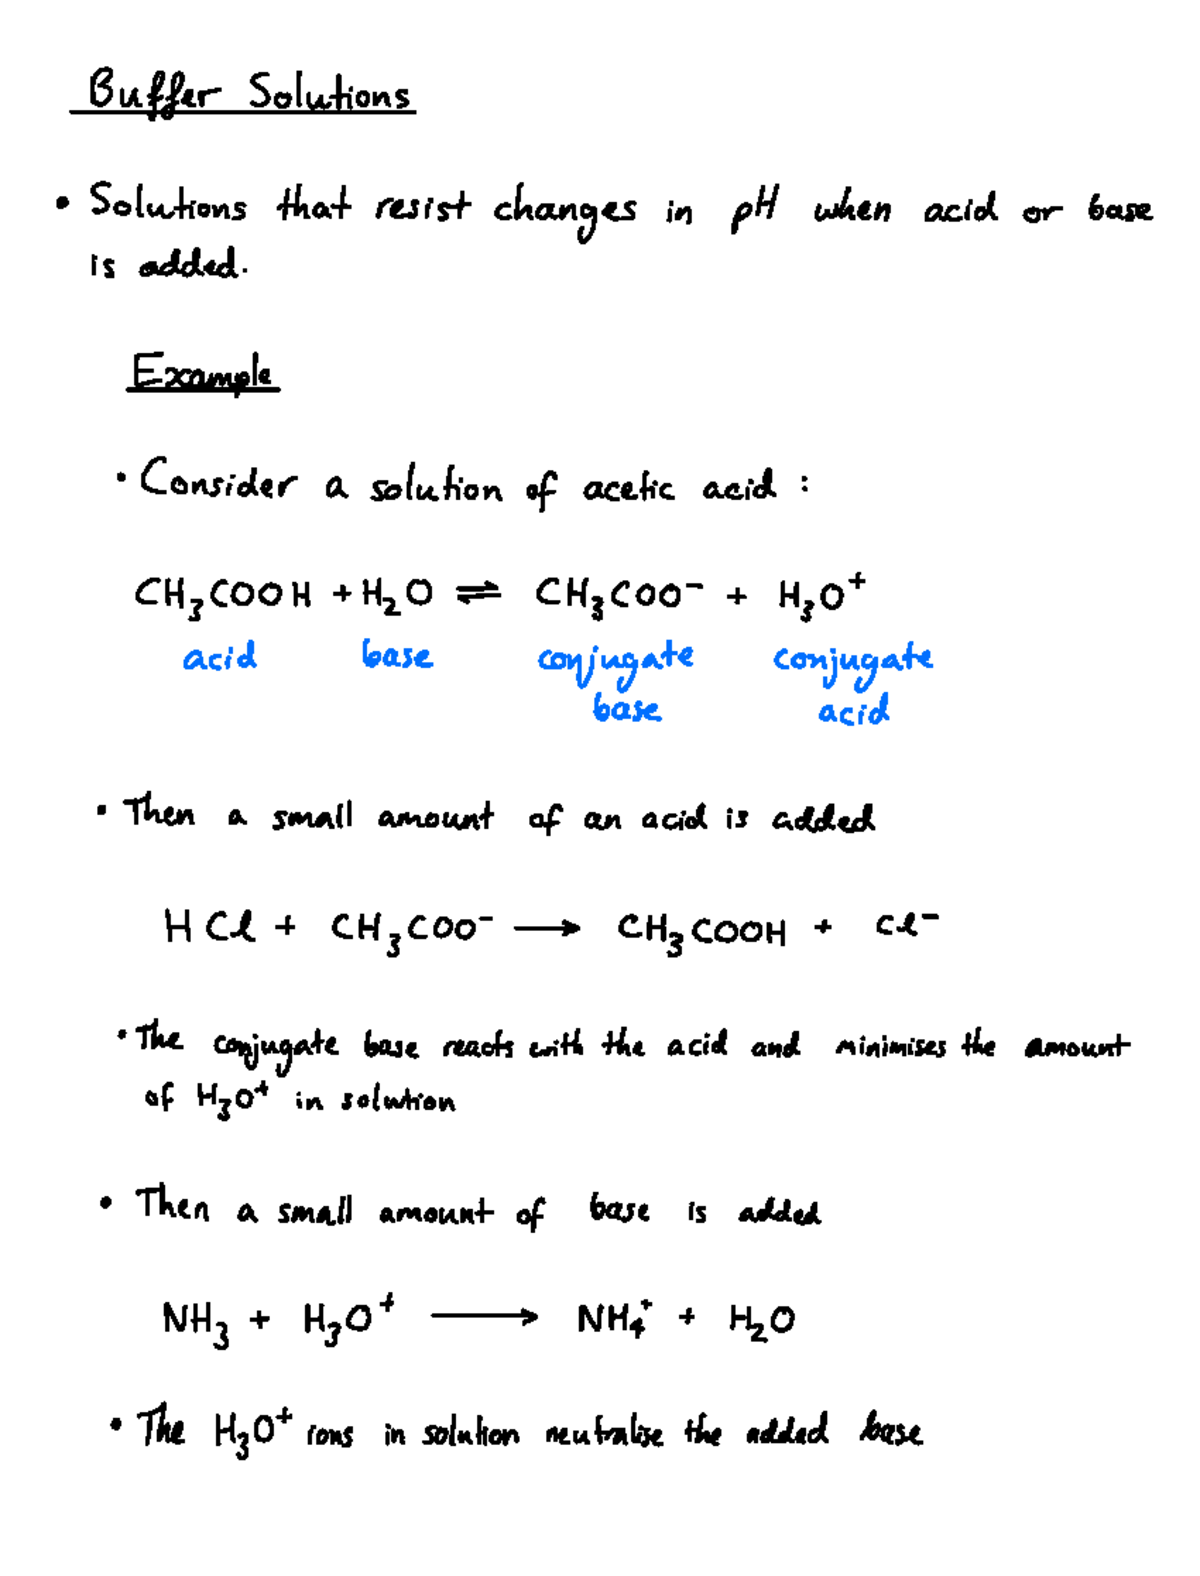 Buffer Solutions
• Solutions that resist changes in pH when acid or base
is added.
Example
• Consider a solution of acetic acid :
CH₃COOH + H₂O ⇌ CH₃COO⁻ + H₃O⁺
acid base conjugate conjugate
base acid
• Then a small amount of an acid is added
HCl + CH₃COO⁻ ⟶ CH₃COOH + Cl⁻
• The conjugate base reacts with the acid and minimises the amount
of H₃O⁺ in solution
• Then a small amount of base is added
NH₃ + H₃O⁺ ⟶ NH₄⁺ + H₂O
• The H₃O⁺ ions in solution neutralise the added base